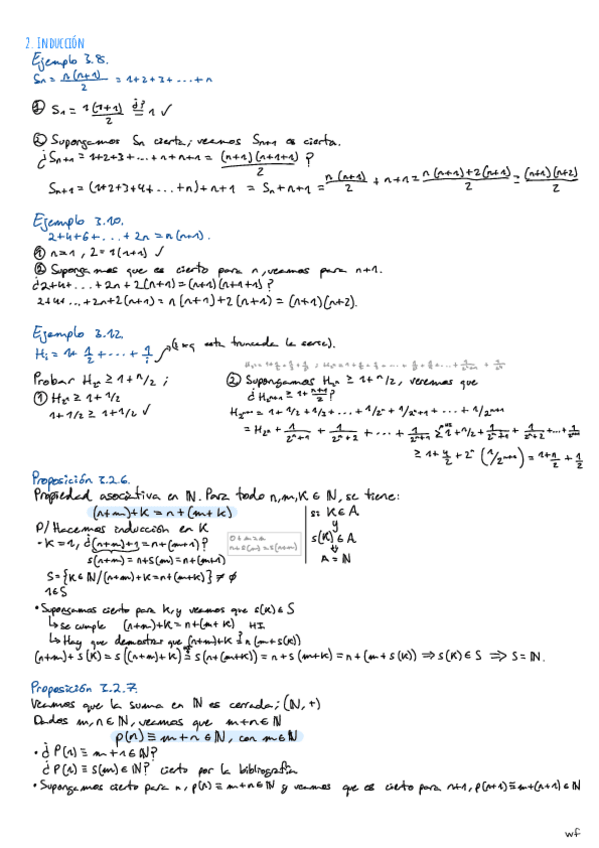 2. INDUCCIÓN
Ejemplo 3.8.
Sn = n(n+1)/2 = 1+2+3+...+n
① S1 = 1(1+1)/2 ¿?= 1 ✓
② Supongamos Sn cierta; veamos Sn+1 es cierta.
¿Sn+1 = 1+2+3+...+n+n+1 = (n+1)(n+1+1)/2?
Sn+1 = (1+2+3+4+...+n)+n+1 = Sn+n+1 = n(n+1)/2 + n+1 = n(n+1)+2(n+1)/2 = (n+1)(n+2)/2
Ejemplo 3.10.
2+4+6+...+2n = n(n+1).
① n=1, 2=1(1+1) ✓
② Supongamos que es cierto para n, veamos para n+1.
¿2+4+...+2n+2(n+1) = (n+1)(n+1+1)?
2+4+...+2n+2(n+1) = n(n+1)+2(n+1) = (n+1)(n+2).
Ejemplo 3.12.
Hi = 1+1/2+...+1/i → esta truncada la serie).
Probar H2^n ≥ 1+n/2;
① H2^1 ≥ 1+1/2
1+1/2 ≥ 1+1/2 ✓
② Supongamos H2^n ≥ 1+n/2, veremos que
¿H2^n+1 ≥ 1+(n+1)/2?
H2^n+1 = 1+1/2+1/3+...+1/2^n+1/2^n+1+...+1/2^n+1
= H2^n + 1/2^n+1 + 1/2^n+2 + ... + 1/2^n+1 ≥ 1+n/2+1/2^n+1+1/2^n+2+...+1/2^n+1
≥ 1+n/2+2^n(1/2^n+1) = 1+n/2+1/2
Proposición 7.2.6.
Propiedad asociativa en ℕ. Para todo n,m,K∈ℕ, se tiene:
(n+m)+K = n+(m+K)
D/ Hacemos inducción en K
- K=1, ¿(n+m)+1 = n+(m+1)?
s(n+m) = n+s(m) = n+(m+1)
si K∈A
y
s(K)∈A
⇓
A=ℕ
S={K∈ℕ/(n+m)+K=n+(m+K)} ≠ ∅
1∈S
• Supongamos cierto para k, y veamos que s(K)∈S
↳ Se cumple (n+m)+K = n+(m+K) HI.
↳ Hay que demostrar que (n+m)+K = n(m+s(K))
(n+m)+s(K) = s((n+m)+K) = s(n+(m+K)) = n+s(m+K) = n+(m+s(K)) ⇒ s(K)∈S ⇒ S=ℕ.
Proposición 7.2.7.
Veamos que la suma en ℕ es cerrada; (ℕ,+)
Dados m,n∈ℕ, veamos que m+n∈ℕ
p(n) ≡ m+n∈ℕ, con m∈ℕ
• ¿P(1) ≡ m+1∈ℕ?
¿P(1) ≡ s(m)∈ℕ? cierto por la bibliografía
• Supongamos cierto para n, p(n) ≡ m+n∈ℕ y veamos que es cierto para n+1, p(n+1) ≡ m+(n+1)∈ℕ
wf